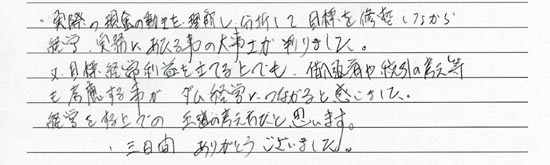 ・実際の現金の動きを理解し、分析して目標を修整しながら
経営、実務にあたる事の大事さが判りました。
又、目標経常利益を立てる上でも、借入返済や税引の考え等
も考慮する事が ダム経営につながると感じました。
経営をする上での 王道の考え方だと思います。
・三日間 ありがとうございました。